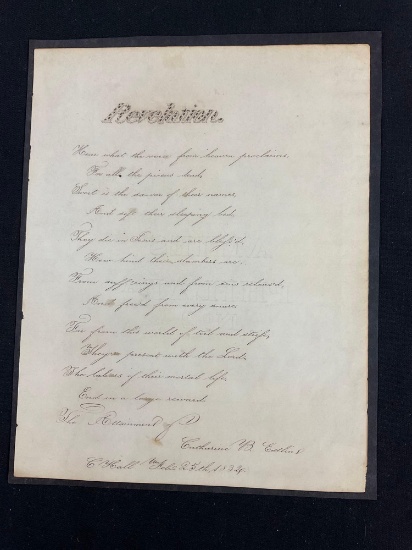 Revelation.
Hear what the voice from heaven proclaims
For all the pious dead,
Sweet is the savour of their names
And soft their sleeping bed.
They die in Jesus and are bless'd,
How kind their slumbers are.
From suff'rings and from sins releas'd,
And freed from every snare.
Far from this world of toil and strife,
They're present with the Lord.
The labors of their mortal life,
End in a large reward.
The of
Catharine B.
C. Hall Feb. 1832